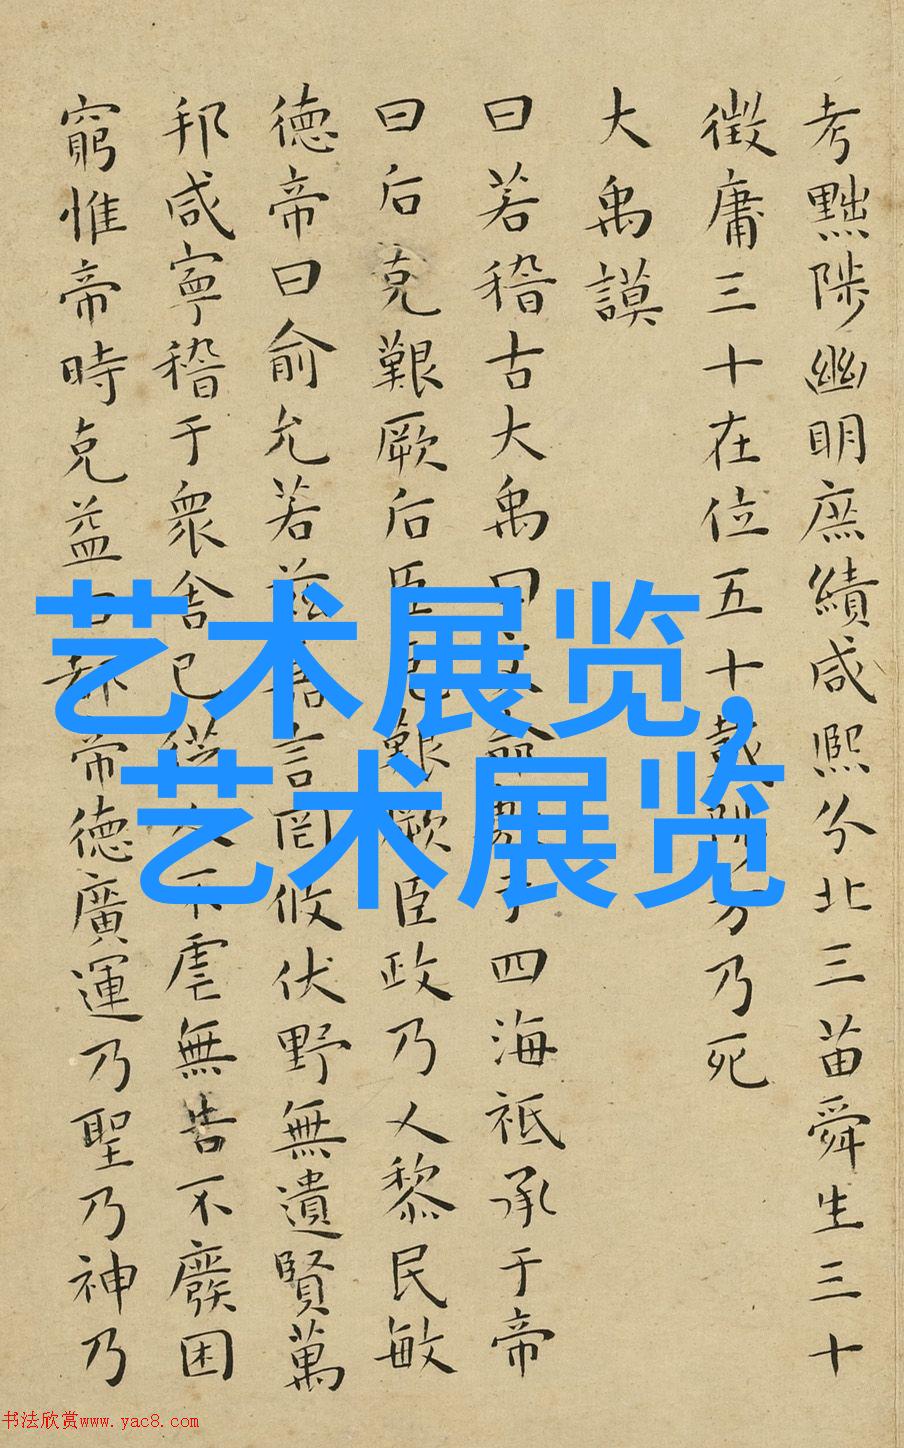 考黜陟幽明庶績咸熙分北三苗舜生三十
徵庸三十在位五十載陟方乃死
大禹謨
曰若稽古大禹曰文命敷于四海祗承于帝
曰后克艱厥后臣克艱厥臣政乃乂黎民敏
德帝曰俞允若茲嘉言罔攸伏野無遺賢萬
邦咸寧稽于衆舍已從人不虐無告不廢困
窮惟帝時克益曰都帝德廣運乃聖乃神乃
艺术展览,
艺术展览
书法欣赏www.yac8.com